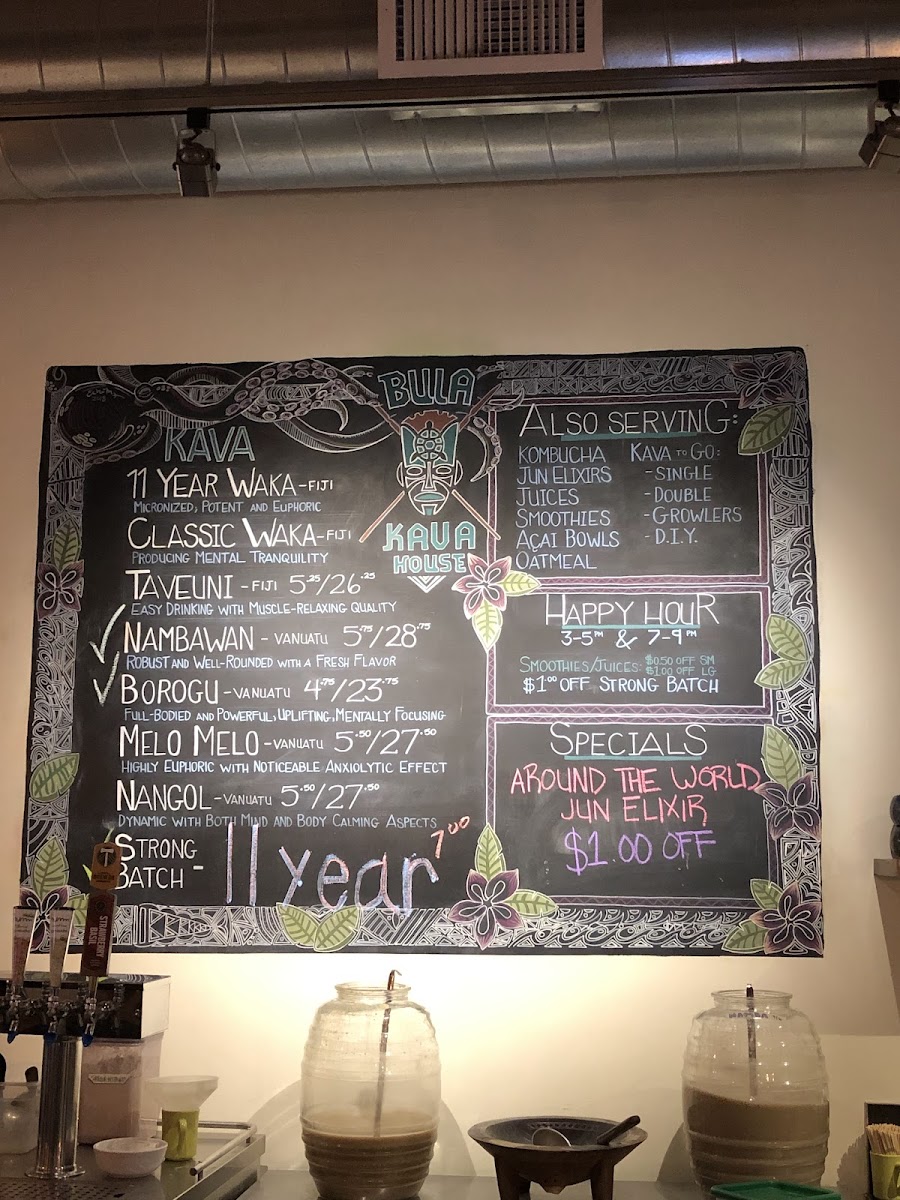 BULA
KAVA
HOUSE
KAVA
11 YEAR WAKA - FIJI
MICRONIZED, POTENT AND EUPHORIC
CLASSIC WAKA - FIJI
PRODUCING MENTAL TRANQUILITY
TAVEUNI - FIJI 5.25/26.25
EASY DRINKING WITH MUSCLE-RELAXING QUALITY
NAMBAWAN - VANUATU 5.75/28.75
ROBUST AND WELL-ROUNDED WITH A FRESH FLAVOR
BOROGU - VANUATU 4.75/23.75
FULL-BODIED AND POWERFUL, UPLIFTING, MENTALLY FOCUSING
MELO MELO - VANUATU 5.50/27.50
HIGHLY EUPHORIC WITH NOTICEABLE ANXIOLYTIC EFFECT
NANGOL - VANUATU 5.50/27.50
DYNAMIC WITH BOTH MIND AND BODY CALMING ASPECTS
STRONG
BATCH - 11 year 7.00
ALSO SERVING:
KOMBUCHA
JUN ELIXIRS
JUICES
SMOOTHIES
AÇAI BOWLS
OATMEAL
KAVA TO GO:
- SINGLE
- DOUBLE
- GROWLERS
- D.I.Y.
HAPPY HOUR
3-5PM & 7-9PM
SMOOTHIES/JUICES: $0.50 OFF SM
$1.00 OFF LG
$1.00 OFF STRONG BATCH
SPECIALS
AROUND THE WORLD
JUN ELIXIR
$1.00 OFF
STRAWBERRY
BASIL